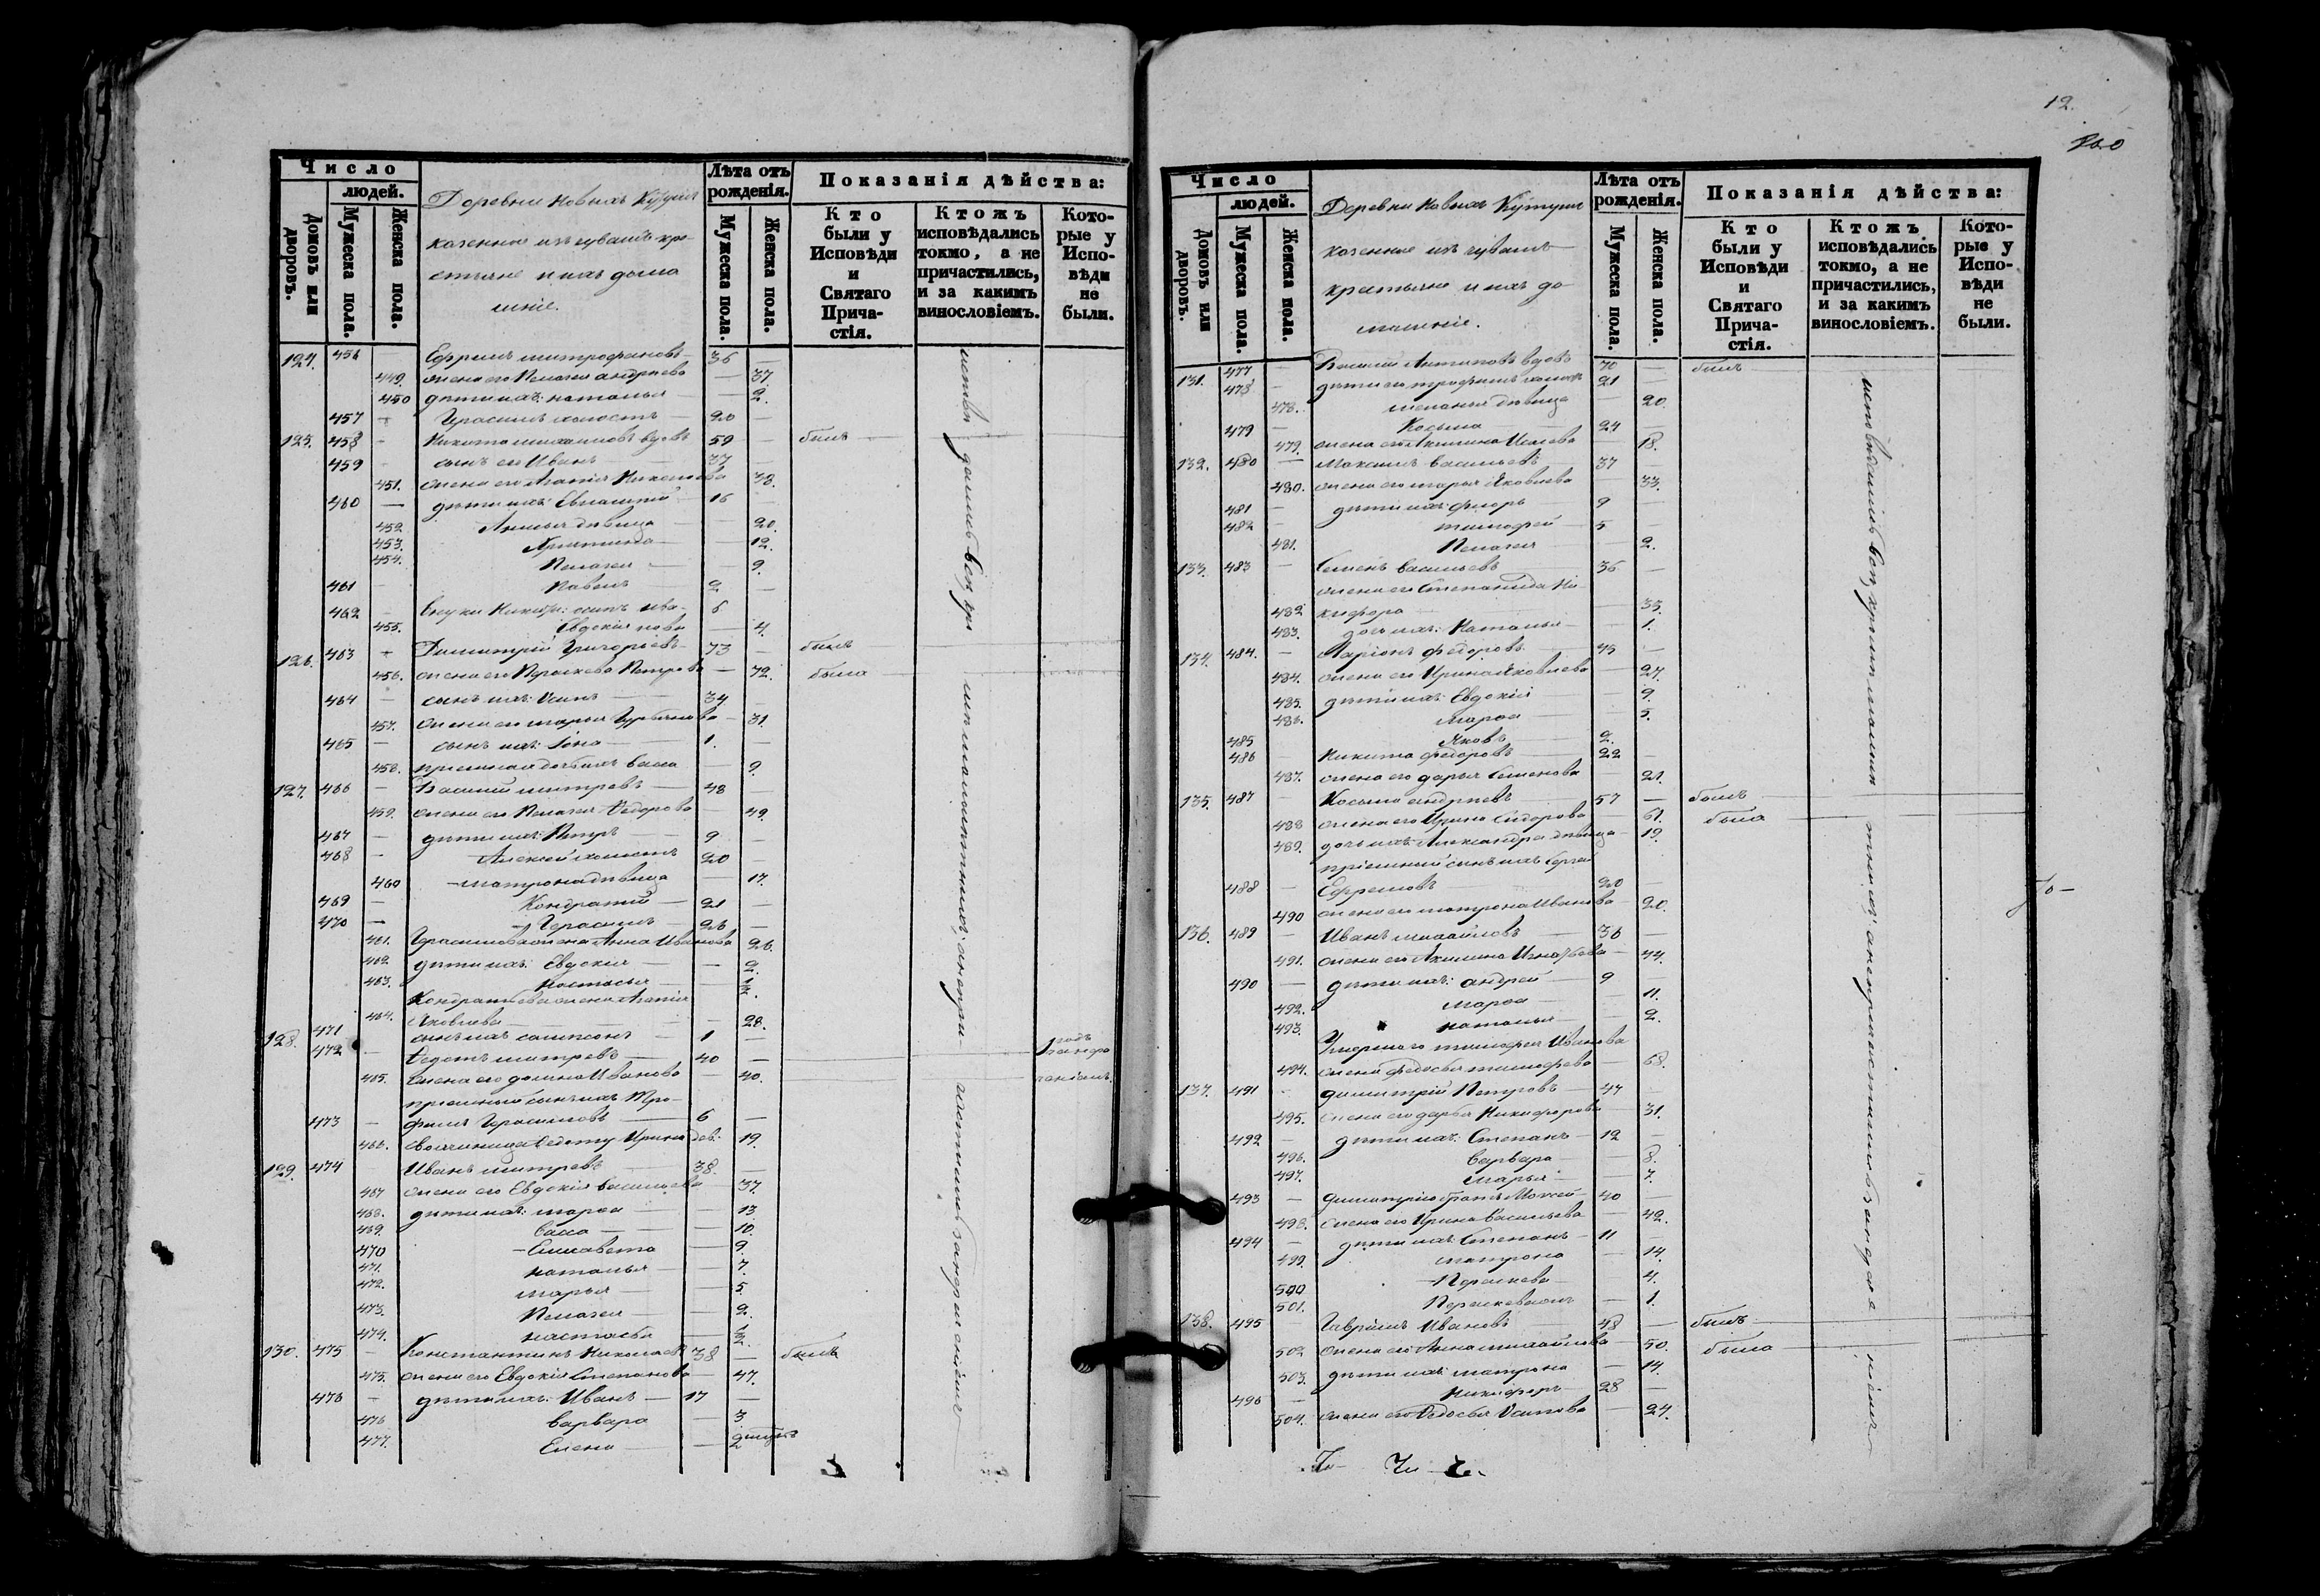 Число
людей.
Домовъ или дворовъ.
Мужеска пола.
Женска пола.
Деревни Новыхъ
казенные изъ чувашъ кре-
стьяне и ихъ дома
шніе.
Лѣта отъ рожденія.
Мужеска пола.
Женска пола.
Показанія дѣйства:
Кто были у Исповѣди и Святаго Причастія.
Ктожъ исповѣдались токмо, а не причастились, и за какимъ винословіемъ.
Которые у Исповѣди не были.
124. 456 — Ефремъ Митрофановъ 36 —
449. жена его Пелагея Андреева — 37.
450 дѣти ихъ: Наталья — 2.
457 — Герасимъ холостъ 20
125. 458 — Никита вдовъ 59 — былъ
459 — сынъ его Иванъ 37 —
451. жена его Агапія 38.
460 — дѣти ихъ: 16 —
452 дѣвица — 20.
453. Христина — 12.
454. Пелагея — 9.
461 — Павелъ 2 —
462 — внуки 6
455. Евдокія — 4.
126. 463 — Димитрій Григорьевъ 73 — былъ
456. жена его Параскева Петрова — 72. была
464 — сынъ ихъ: Осипъ 34 —
457. жена его Марья — 31.
465 — сынъ ихъ: Іона 1. —
458. Васса — 9.
127. 466 — Василій Митревъ 48 —
459. жена его Пелагея Ѳедорова — 49.
467 — дѣти ихъ: Петръ 9 —
468 — Алексей холостъ 20 —
460 Матрона дѣвица — 17.
469 — Кондратій 21 —
470 — Герасимъ 26 —
461. Герасимова жена Анна Иванова 26.
462. дѣти ихъ: Евдокія — 2.
463. Настасья — ½.
Кондратьева жена Агапія
464. Яковлева — 28.
471 сынъ ихъ Сампсонъ 1 —
128. 472 — Ѳедотъ Митревъ 40 —
465. жена его Иванова — 40.
пріемный сынъ ихъ Тро-
473 — фимъ Герасимовъ 6 —
466. Ѳедоту Ирина дев. 19.
129. 474 Иванъ Митревъ 38. —
467 жена его Евдокія Васильева 37.
468. дѣти ихъ: Марѳа — 13
469. Васса — 10.
470 Елисавета — 9.
471. Наталья — 7.
472. Марья — 5
473. Пелагея — 2.
474. Настасья — ½.
130. 475 — Константинъ Николаевъ 38 — былъ
475. жена его Евдокія Степанова — 47.
476 — дѣти ихъ: Иванъ 17 —
476 Варвара — 3
477. Елена — 2
12.
Число
людей.
Домовъ или дворовъ.
Мужеска пола.
Женска пола.
Деревни Новыхъ
казенные изъ чувашъ
крестьяне и ихъ до
машніе.
Лѣта отъ рожденія.
Мужеска пола.
Женска пола.
Показанія дѣйства:
Кто были у Исповѣди и Святаго Причастія.
Ктожъ исповѣдались токмо, а не причастились, и за какимъ винословіемъ.
Которые у Исповѣди не были.
131. 477 — Василій Антиповъ вдовъ 70 — былъ
478 — дѣти его Трофимъ холостъ 21 —
478. Меланья дѣвица — 20.
479 — Косьма 24 —
479. жена его Акилина — 18.
132. 480 — Максимъ Васильевъ 37 —
480. жена его Марья Яковлева — 33.
481 — дѣти ихъ: 9 —
482 — Тимофей 5 —
481. Пелагея — 2.
133. 483 — Семенъ Васильевъ 36 —
жена его Степанида Ни-
482 кифора — 35.
483. дочь ихъ: Наталья — 1.
134. 484. — Ларіонъ Федоровъ 43 —
484. жена его Ирина Яковлева — 27.
485. дѣти ихъ: Евдокія — 9.
486. Марѳа — 5.
485 Яковъ 2.
486 — Никита Федоровъ 22 —
487. жена его Дарья Семенова — 21.
135. 487 — Косьма Андреевъ 57 — былъ
488 жена его Ирина Сидорова — 61. была
489. дочь ихъ Александра дѣвица — 19.
пріемный сынъ ихъ Сергей
488 — Ефремовъ 20 —
490 жена его Матрона Иванова — 20.
136. 489 — Иванъ Михайловъ 36 —
491. жена его Акилина Игнатьева — 44.
490 — дѣти ихъ: Андрей 9
492. Марѳа — 11.
493. Наталья — 2.
Умершаго Тимофея Иванова
494. жена Федосья Тимофеева — 68.
137. 491 — Димитрій Петровъ 47
495. жена его Дарья Никифорова — 31.
492 — дѣти ихъ: Степанъ 12 —
496. Варвара — 8.
497. Марья — 7.
493 — Димитрія братъ Моисей 40 —
498. жена его Ирина Васильева — 42.
494 — дѣти ихъ: Степанъ 11 —
499. Матрона — 14.
500 Параскева — 4.
501. — 1.
138. 495 Гавріилъ Ивановъ 48 — былъ
502 жена его Анна Михайлова — 50. была
503. дѣти ихъ: Матрона — 14.
496 — Никифоръ 28 —
504. жена его Ѳедосья Осипова — 24.